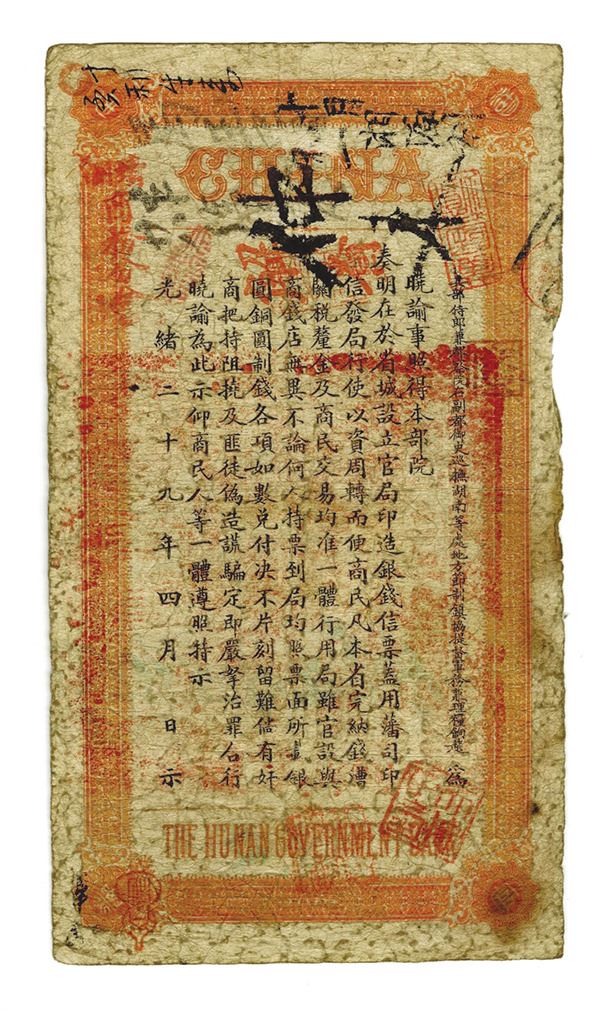 CHINA
兵部侍郎兼都察院右副都御史巡撫湖南等處地方節制鎮協提督軍務兼理糧餉 為
曉諭事照得本部院
奏明在於省城設立官局印造銀錢信票蓋用藩司印
信發局行使以資周轉而便商民凡本省完納錢漕
關稅釐金及商民交易均准一體行用局雖官設與
商錢店無異不論何人持票到局均照票面所載銀
圓銅圓制錢各項如數兌付決不片刻留難倘有奸
商把持阻撓及匪徒偽造謊騙定即嚴拏治罪合行
曉諭為此示仰商民人等一體遵照特示
光緒二十九年四月 日示
THE HUNAN GOVERNMENT BANK